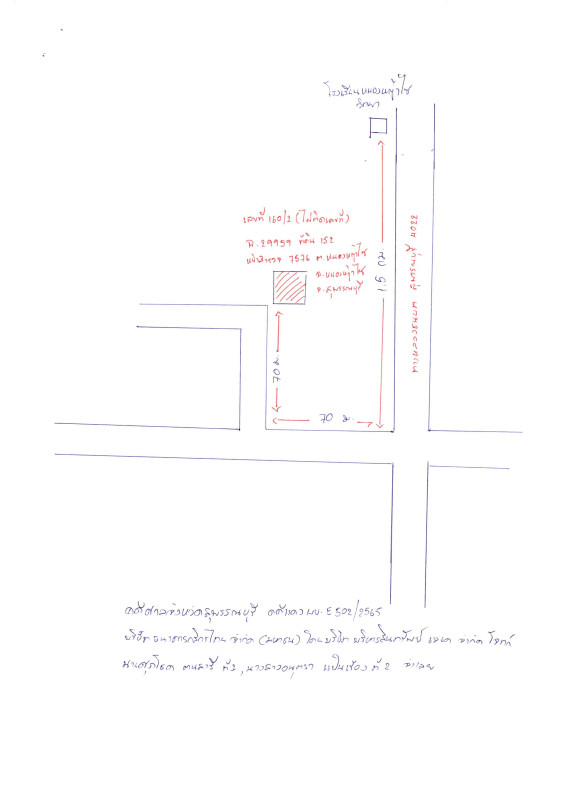 โรงเรียนหนองหญ้าไซ
วิทยา
เลขที่ 160/2 (ไม่ติดเลขที่)
ฉ.29959 ที่ดิน 152
หน้าสำรวจ 7576 ต.หนองหญ้าไซ
อ.หนองหญ้าไซ
จ.สุพรรณบุรี
1.5 กม
3502
70 ม
70 ม.
คดีศาลจังหวัดสุพรรณบุรี คดีแดง ผบ.E502/2565
บริษัท ธนาคารกสิกรไทย จำกัด (มหาชน) โดย บริษัท บริหารสินทรัพย์ เจเค จำกัด โจทก์
ที่ 1, นางสาวอนุตรา แป้นเรือง ที่ 2 จำเลย